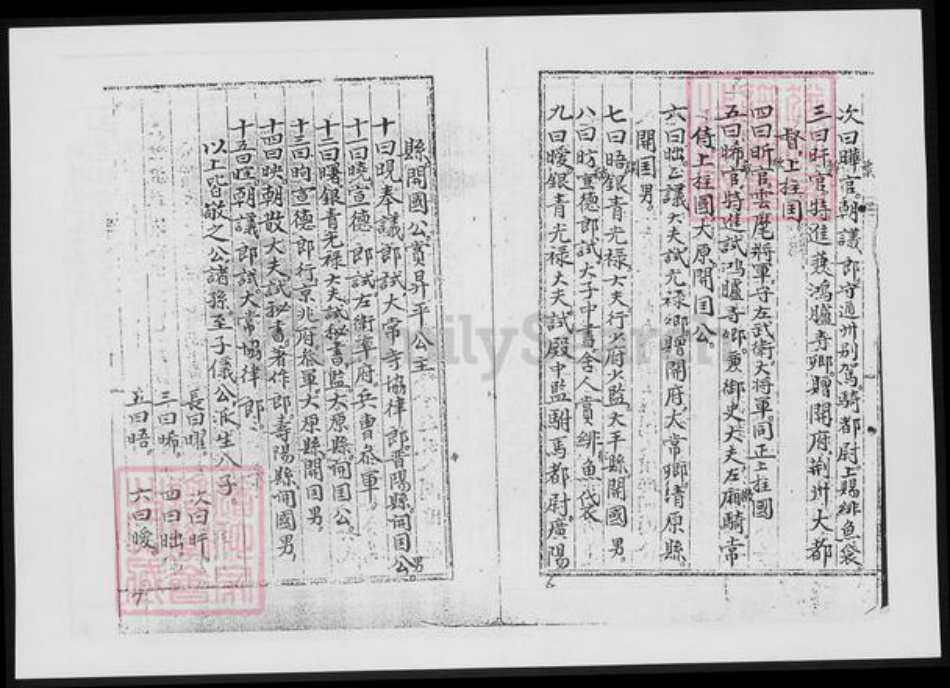 次曰曄官朝議郎守通州别駕騎都尉上賜緋魚袋
三曰旰官特進兼鴻臚寺卿贈開府荆州大都
督上柱囯
四曰昕官雲麾將軍守左武衛大將軍同正上柱國
五曰晞官特進試鴻臚寺卿兼御史大夫左廂騎常
侍上柱國大原開囯公
六曰昢正議大夫試光禄卿贈開府大常卿清原縣
開囯男
七曰晤銀青光禄大夫行少府少監大平縣開國男
八曰昉宣德郎試大子中書舍人賞緋魚代衣
九曰曖銀青光禄大夫試殿中監駙馬都尉廣陽
縣開國公賞昇平公主
十曰晛奉議郎試大常寺協律郎晋陽縣開囯公男
十一曰曉宣德郎試左衛率府兵曹叅軍
十二曰曙銀青光禄大夫試秘書監太原縣開囯公
十三曰昫宣德郎行京兆府叅軍大原縣開囯男
十四曰映朝散大夫試秘書著作郎壽陽縣開國男
十五曰暄朝議郎試大常協律郎
以上皆敬之公諸孫至子儀公派生八子
長曰曜 次曰旰
三曰晞 四曰昢
五曰晤 六曰曖
6
7
FamilySearch